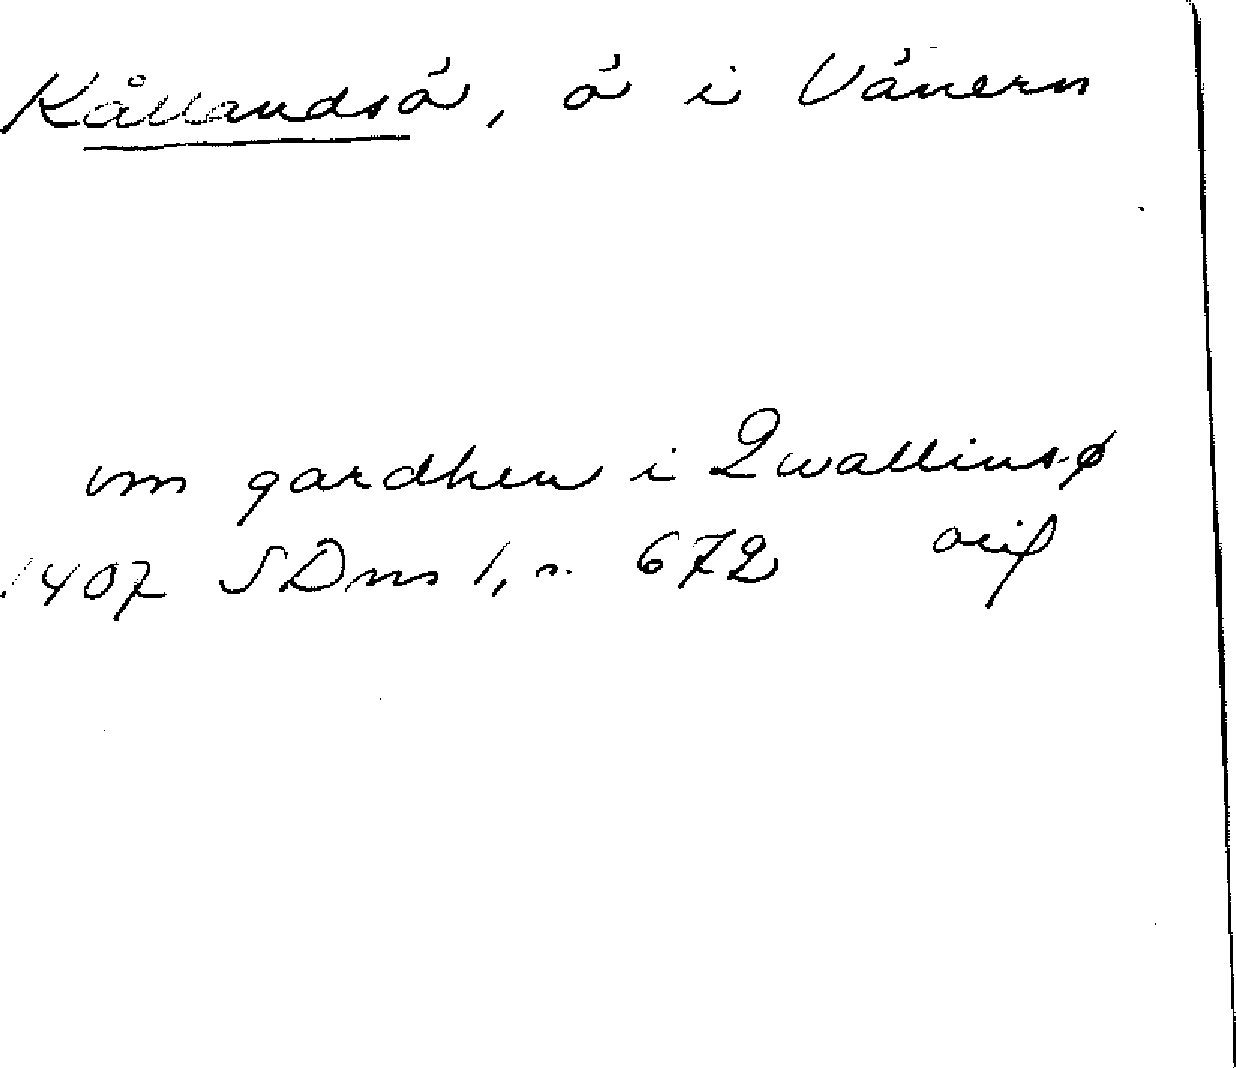 Kållandsö, ö i Vänern
om gardhen i Qwallins-ø
1407 SDns 1, s. 672 orig